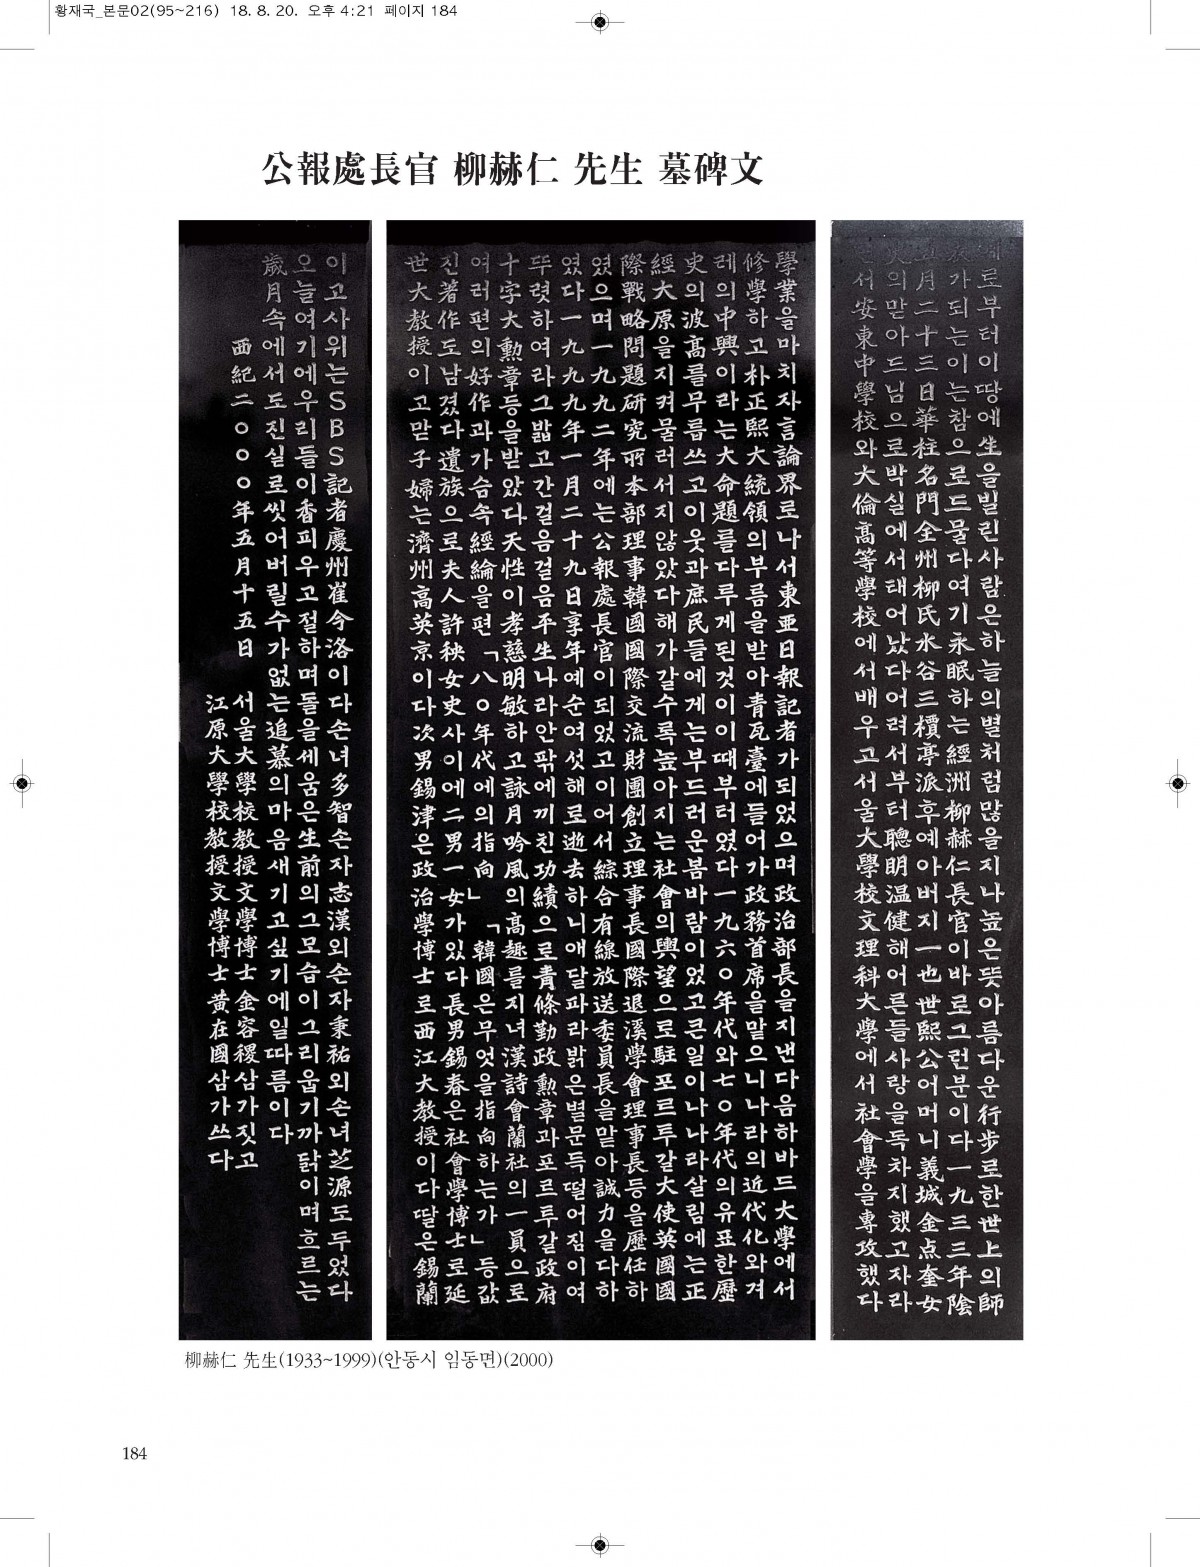 황재국_본문02(95~216) 18. 8. 20. 오후 4:21 페이지 184
公報處長官 柳赫仁 先生 墓碑文
예로부터이땅에生을빌린사람은하늘의별처럼많을지나높은뜻아름다운行步로한世上의師
表가되는이는참으로드물다여기永眠하는經洲柳赫仁長官이바로그런분이다一九三三年陰
五月二十三日華柱名門全州柳氏水谷三檟亭派후예아버지一也世熙公어머니義城金点奎女
史의맏아드님으로박실에서태어났다어려서부터聰明温健해어른들사랑을독차지했고자라
면서安東中學校와大倫高等學校에서배우고서울大學校文理科大學에서社會學을專攻했다
學業을마치자言論界로나서東亞日報記者가되었으며政治部長을지낸다음하바드大學에서
修學하고朴正熙大統領의부름을받아青瓦臺에들어가政務首席을맡으니나라의近代化와겨
레의中興이라는大命題를다루게된것이이때부터였다一九六〇年代와七〇年代의유표한歷
史의波高를무릅쓰고이웃과庶民들에게는부드러운봄바람이었고큰일이나나라살림에는正
經大原을지켜물러서지않았다해가갈수록높아지는社會의輿望으로駐포르투갈大使英國國
際戰略問題研究所本部理事韓國國際交流財團創立理事長國際退溪學會理事長등을歷任하
였으며一九九二年에는公報處長官이되었고이어서綜合有線放送委員長을맡아誠力을다하
였다一九九九年一月二十九日享年예순여섯해로逝去하니애달파라밝은별문득떨어짐이여
뚜렷하여라그밟고간걸음걸음平生나라안팎에끼친功績으로青條勤政勳章과포르투갈政府
十字大勳章등을받았다天性이孝慈明敏하고詠月吟風의高趣를지녀漢詩會蘭社의一員으로
여러편의好作과가슴속經綸을편「八〇年代에의指向」「韓國은무엇을指向하는가」등값
진著作도남겼다遺族으로夫人許秧女史사이에二男一女가있다長男錫春은社會學博士로延
世大教授이고맏子婦는濟州高英京이다次男錫津은政治學博士로西江大教授이다딸은錫蘭
이고사위는SBS記者慶州崔今洛이다손녀多智손자志漢외손자秉祐외손녀芝源도두었다
오늘여기에우리들이香피우고절하며돌을세움은生前의그모습이그리움기까닭이며흐르는
歲月속에서도진실로씻어버릴수가없는追慕의마음새기고싶기에일따름이다
西紀二〇〇〇年五月十五日 서울大學校教授文學博士金容稷삼가짓고
江原大學校教授文學博士黃在國삼가쓰다
柳赫仁 先生(1933~1999)(안동시 임동면)(2000)
184